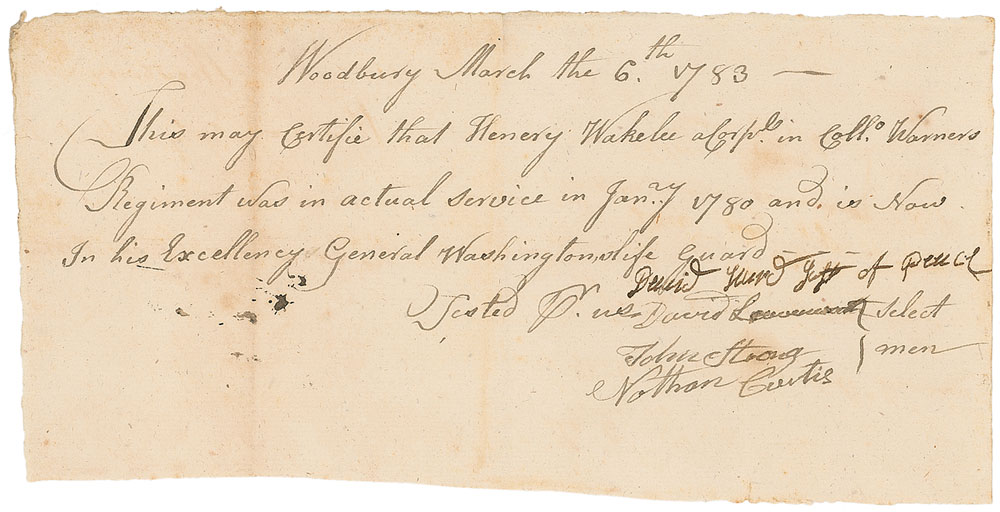 Woodbury March the 6.th 1783 —
This may Certifie that Henery Wakelee a Corpls. in Collo. Warners
Regiment was in actual service in Janry 1780 and. is Now
In his Excellency General Washingtons life Guard
David Hurd Just of Peace
Tested Pr. us David { Select
John Strong } men
Nathan Curtis